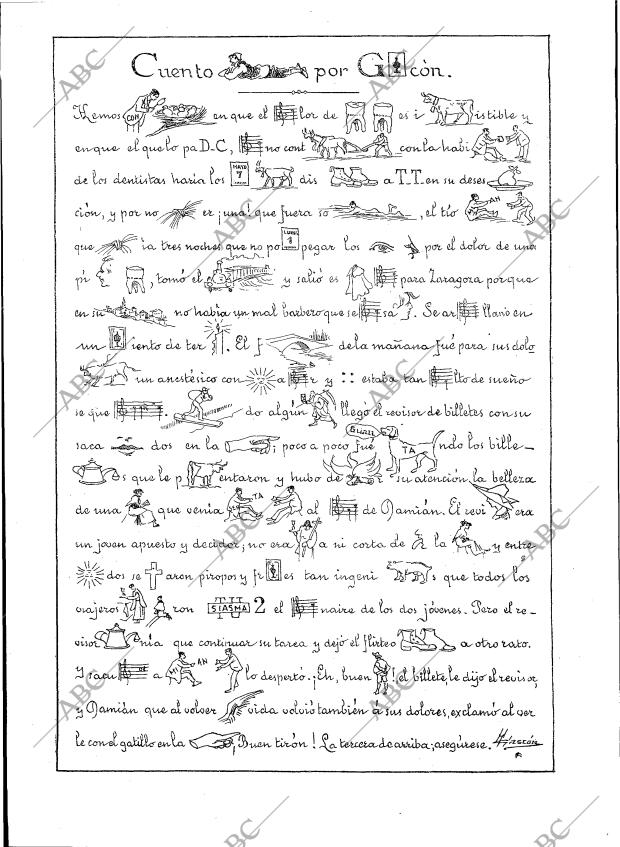 Cuento por G cón.
Hemos CON en que el lor de es i istible y
en que el que lo pa D.C, no cont con la habi
de los dentistas haría los MAYO 7 dis a T.T. en su deses
ción, y por no er ¡una! que fuera so , el tío AN
que ía tres noches que no po LUNES 1 pegar los por el dolor de una
pi , tomó el y salió es para Zaragoza porque
en su no había un mal barbero que se sa . Se ar llanó en
un iento de ter . El f de la mañana fué para sus dolo
un anestésico con a r y :: estaba tan lto de sueño
se que . do algún llegó el revisor de billetes con su
saca dos en la ; poco a poco fué GUAU TA ndo los bille-
s que le p entaron y hubo de su atención la belleza
de una que venía TA al de Damián. El revi era
un joven apuesto y decidor; no era a ni corta de la y entre
dos se aren piropos y fr es tan ingeni s que todos los
viajeros ron SIASMA 2 el naire de los dos jóvenes. Pero el re-
visor nía que continuar su tarea y dejó el flirteo a otro rato.
Y sacu a MI AN lo despertó. ¡Eh, buen ! el billete, le dijo el revisor,
y Damián que al volver vida volvió también á sus dolores, exclamó al ver
le con el gatillo en la , ¡Buen tirón! La tercera de arriba; asegúrese.
ABC